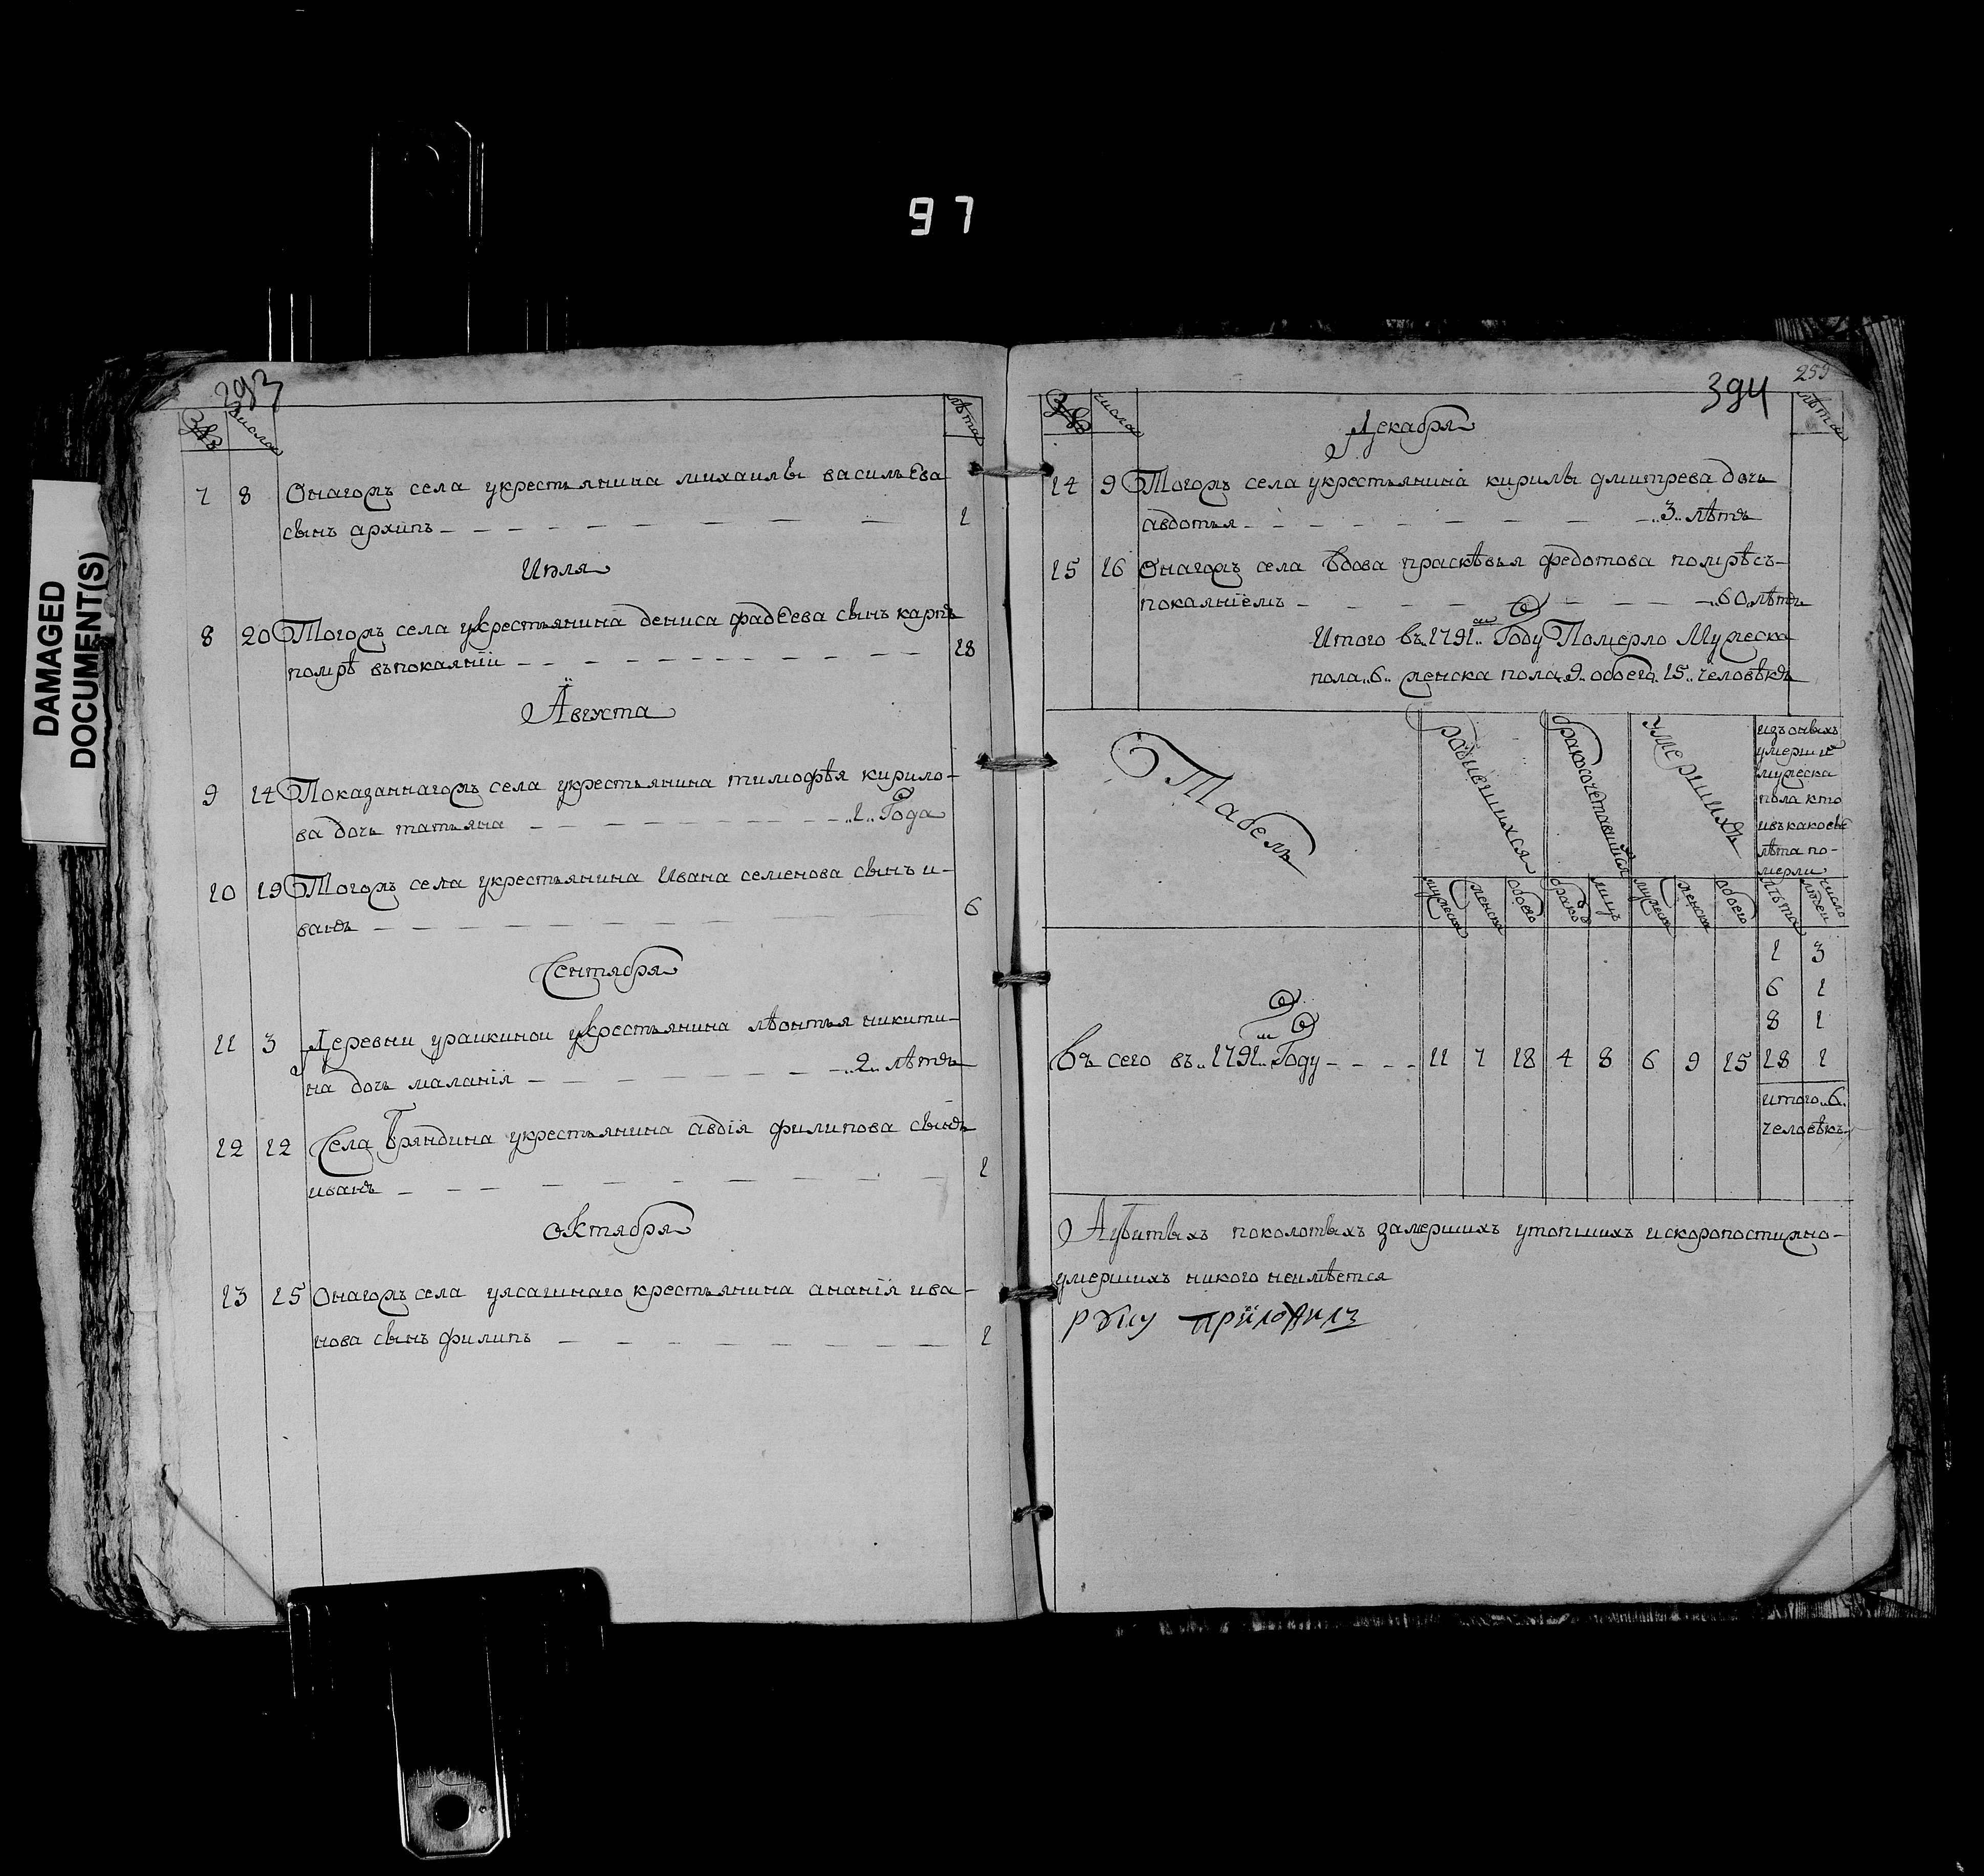 97
DAMAGED
DOCUMENT(S)
393
№ числа лѣта
7 8 Онагожъ села укрестьянина михаилы васильева
сынъ архипъ 1
Июля
8 20 Тогожъ села укрестьянина дениса фадѣева сынъ карпъ
помрѣ въпокаянїи 18
Августа
9 14 Показаннагожъ села укрестьянина тимофѣя кирило-
ва дочь татьяна ..1.. Года
10 19 Тогожъ села укрестьянина Ивана семенова сынъ и-
ванъ 6
Сентября
11 3 Деревни ураикинои укрестьянина лѣонтья никити-
на дочь маланїя ..2.. лѣтъ
12 12 Села Бряндина укрестьянина авдїя филипова сынъ
иванъ 1
октября
13 15 Онагожъ села уясашнаго крестьянина ананїя ива-
нова сынъ филипъ 1
394
259
№ числа лѣта
Декабря
14 9 Тогожъ села укрестьянина кирилы дмитрева дочь
авдотья ..3.. лѣтъ
15 16 Онагожъ села вдова прасківья федотова помрѣ съ-
покаянїемъ ..60.. лѣтъ
Итого въ..1791.. Году Померло Мужеска
пола..6.. женска пола..9.. обоего..15.. человѣкъ
Табель
родившихся
бракосочетавшихся
умершихъ
изъ оныхъ
умершие
мужеска
пола кто
ивъкакове
лѣта по-
мерли
мужеска женска обоего браковъ лицъ мужеска женска обоего лѣта число людеи
1 3
6 1
8 1
Въ сего въ..1791.. Году 11 7 18 4 8 6 9 15 18 1
итого..6..
человѣкъ
А убитыхъ поколотыхъ замершихъ утопшихъ искоропостижно-
умершихъ никого неимѣется
руку приложилъ